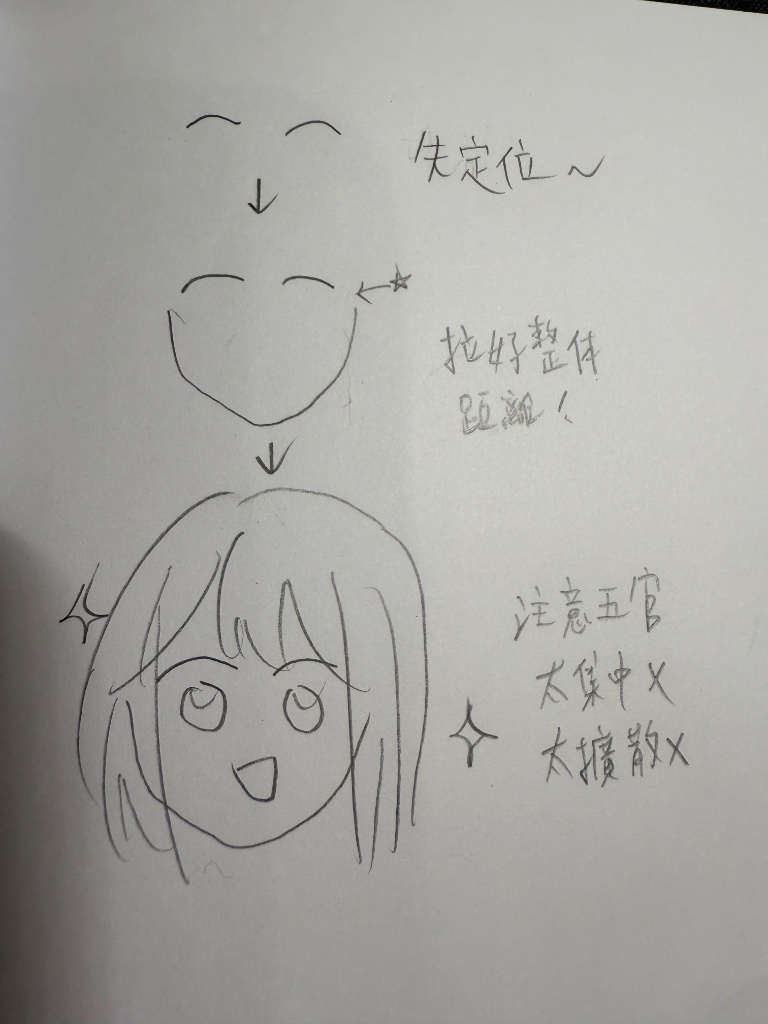 先定位~
拉好整体
距離!
注意五官
太集中X
太擴散X